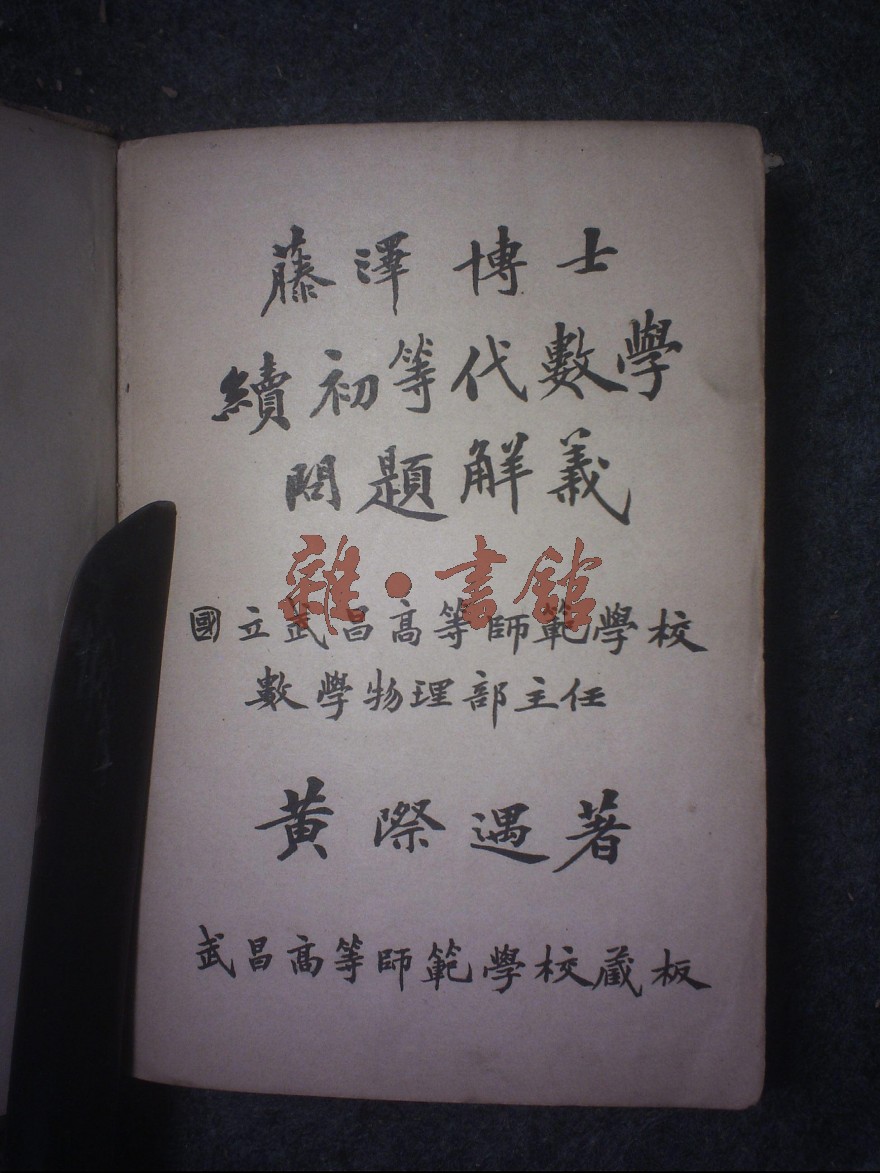 藤澤博士
續初等代數學
問題解義
雜·書館
國立武昌高等師範學校
數學物理部主任
黃際遇著
武昌高等師範學校蔵板